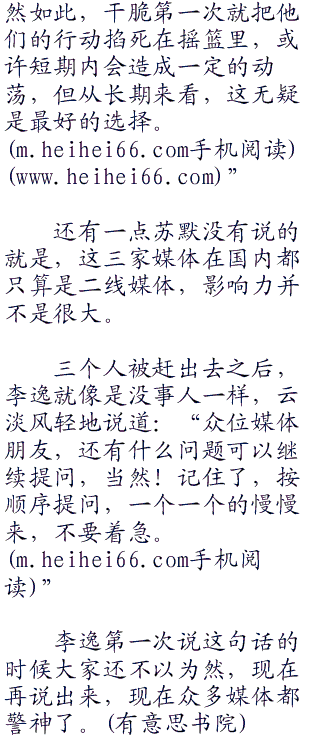 然如此，干脆第一次就把他
们的行动掐死在摇篮里，或
许短期内会造成一定的动
荡，但从长期来看，这无疑
是最好的选择。
(m.heihei66.com手机阅读)
(www.heihei66.com)”
还有一点苏默没有说的
就是，这三家媒体在国内都
只算是二线媒体，影响力并
不是很大。
三个人被赶出去之后，
李逸就像是没事人一样，云
淡风轻地说道：“众位媒体
朋友，还有什么问题可以继
续提问，当然！记住了，按
顺序提问，一个一个的慢慢
来，不要着急。
(m.heihei66.com手机阅
读)”
李逸第一次说这句话的
时候大家还不以为然，现在
再说出来，现在众多媒体都
警神了。(有意思书院)